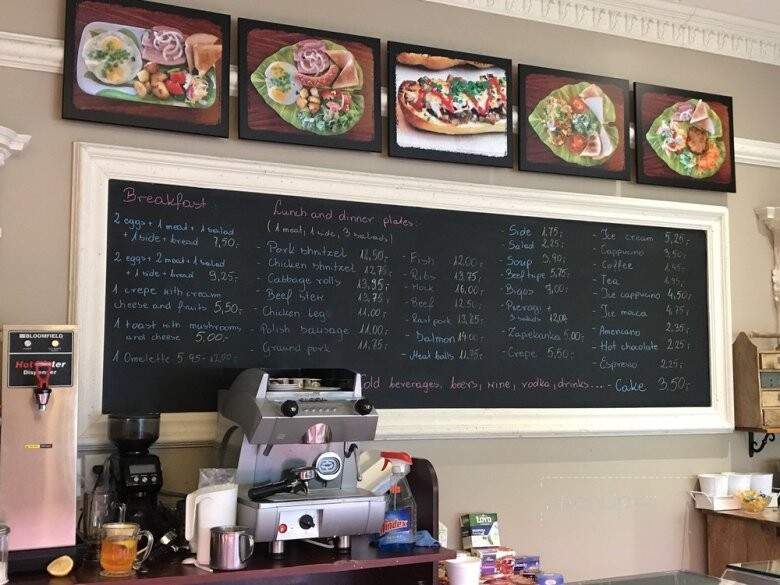 Breakfast
2 eggs + 1 meat + 1 salad
+ 1 side + bread 7,50,-
2 eggs + 2 meat + 1 salad
+ 1 side + bread 9,25,-
1 crepe with cream
cheese and fruits 5,50,-
1 toast with mushrooms
and cheese 5.00,-
1 Omelette 5.95 -
Lunch and dinner plates
(1 meat, 1 side, 3 salads)
- Pork shnitzel 12,50,-
Chicken shnitzel 12,75,-
- Cabbage rolls 13,95,-
- Beef stew 13,75,-
- Chicken leg 11,00,-
- Polish sausage 11,00,-
- Ground pork 11,75,-
- Fish 12.00,-
- Ribs 13,75,-
- Hock 16.00,-
- Beef 12.50,-
- Roast pork 13,25,-
- Salmon 14.00,-
- Meat balls 11,75,-
Side 1,75,-
- Salad 2,25,-
- Soup 3,90,-
- Beef tripe 5,75,-
- Bigos 7,00,-
- Pierogi
2 salads 12.00
- Zapekanka 5.00,-
- Crepe 5,50,-
- Ice cream 5,25,-
- Cappucino 3,50,-
- Coffee 1,95,-
- Tea 1,95,-
- Ice cappucino 4,50,-
- Ice mocca 4,75,-
- Americano 2,35,-
- Hot chocolate 2,25,-
- Espresso 2,25,-
Cold beverages, beers, wine, vodka, drinks... - Cake 3,50,-
BLOOMFIELD
Hot Water
Dispenser
Windex